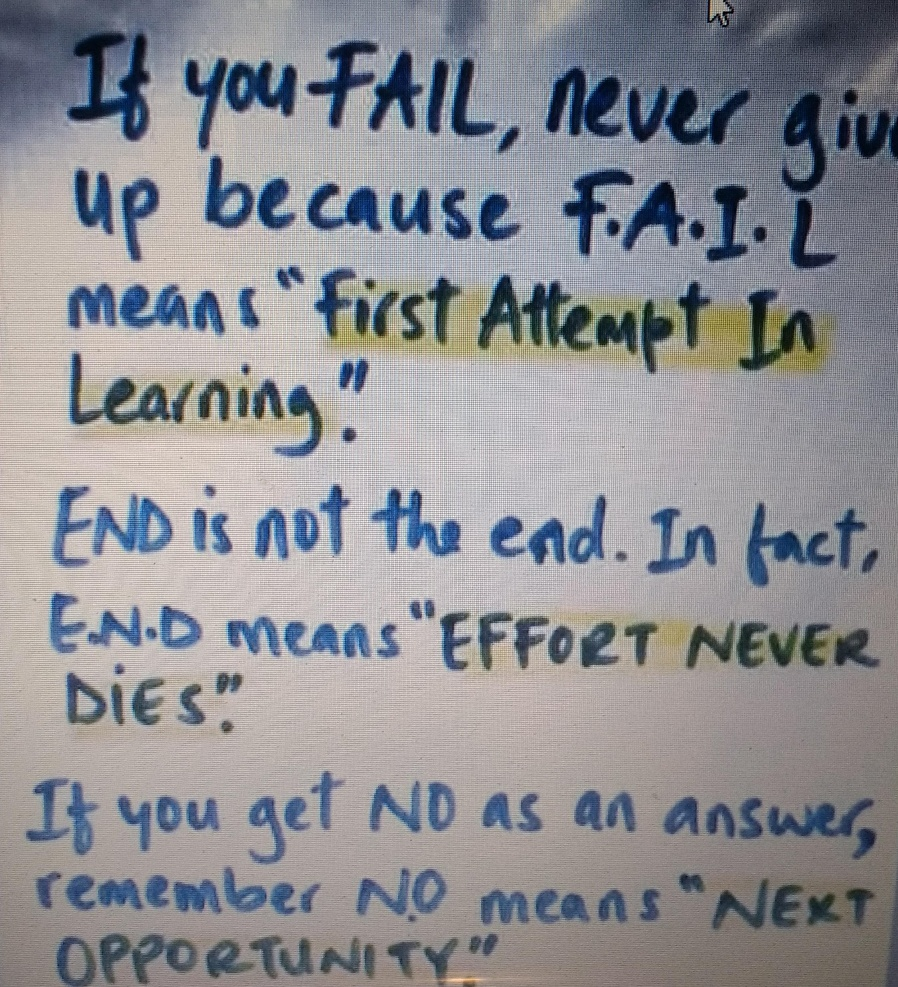 If you FAIL, never give
up because F.A.I.L
means "First Attempt In
Learning".
END is not the end. In fact,
E.N.D means "EFFORT NEVER
DiES".
If you get NO as an answer,
remember N.O means "NEXT
OPPORTUNITY".